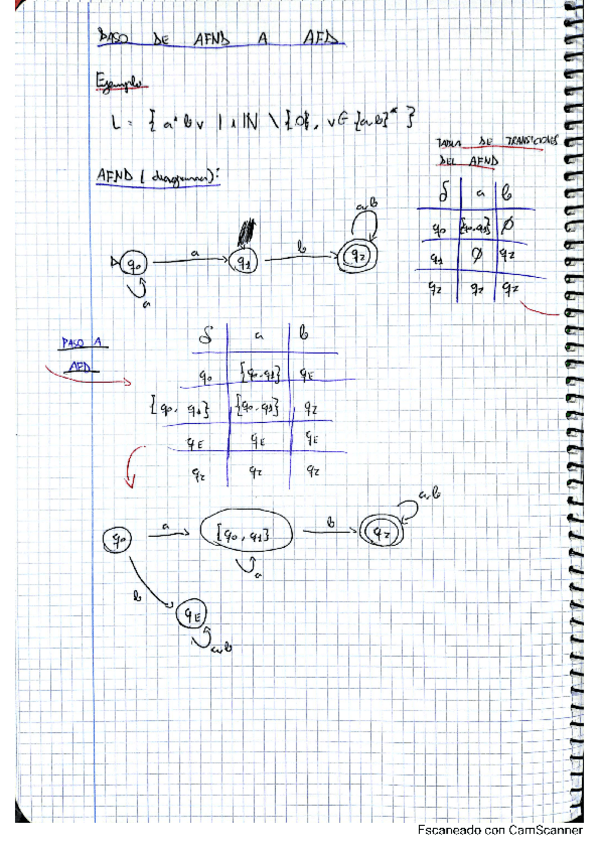 PASO DE AFND A AFD
Ejemplo
L = { aⁱ b v | i ∈ ℕ \ {0}, v ∈ {a,b}* }
TABLA DE TRANSICIONES
DEL AFND
AFND (diagrama):
δ a b
q0 {q0,q1} ∅
q1 ∅ q2
q2 q2 q2
q0 a q1 b q2 a,b
a
PASO A
AFD
δ a b
q0 {q0,q1} qE
{q0,q1} {q0,q1} q2
qE qE qE
q2 q2 q2
q0 a {q0,q1} b q2 a,b
a
b
qE
a,b
Escaneado con CamScanner